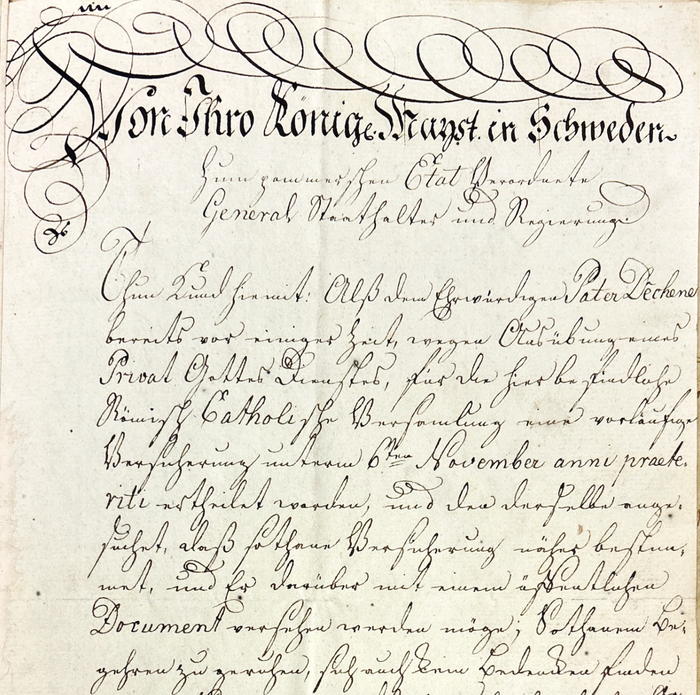 Von Ihro Königl. Mayst. in Schweden
Zum pommerschen Etat Verordnete
General Staathalter und Regierung.
Thun Kund hiemit: Alß dem Ehrwürdigen Pater Dechene
bereits vor einiger Zeit, wegen Ausübung eines
Privat Gottes Dienstes, für die hier befindliche
Römisch Catholische Versamlung eine vorläufige
Versicherung unterm 6ten November anni praete-
riti ertheilet worden, und den derselbe ange-
suchet, daß sothane Versicherung näher bestim-
met, und Er darüber mit einem öffentlichen
Document versehen werden möge; Sothanem Be-
gehren zu geruhen, sich auch kein Bedencken finden